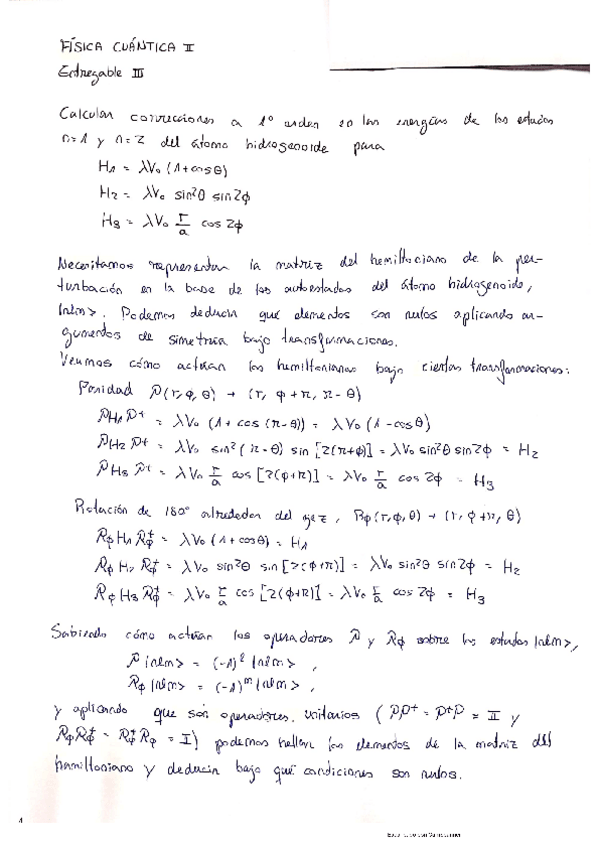 FÍSICA CUÁNTICA II
Entregable III
Calcular correcciones a 1º orden en las energías de los estados
n=1 y n=2 del átomo hidrogenoide para
H₁ = λV₀ (1+cosθ)
H₂ = λV₀ sin²θ sin2φ
H₃ = λV₀ r/a cos2φ
Necesitamos representar la matriz del hamiltoniano de la per-
turbación en la base de los autoestados del átomo hidrogenoide,
|nlm>. Podemos deducir qué elementos son nulos aplicando ar-
gumentos de simetría bajo transformaciones.
Veamos cómo actúan los hamiltonianos bajo ciertas transformaciones:
Paridad P(r,φ,θ) → (r, φ+π, π-θ)
PH₁P⁺ = λV₀ (1+cos(π-θ)) = λV₀ (1-cosθ)
PH₂P⁺ = λV₀ sin²(π-θ) sin[2(π+φ)] = λV₀ sin²θ sin2φ = H₂
PH₃P⁺ = λV₀ r/a cos[2(φ+π)] = λV₀ r/a cos2φ = H₃
Rotación de 180º alrededor del eje z, Rφ(r,φ,θ) → (r, φ+π, θ)
RφH₁Rφ⁺ = λV₀ (1+cosθ) = H₁
RφH₂Rφ⁺ = λV₀ sin²θ sin[2(φ+π)] = λV₀ sin²θ sin2φ = H₂
RφH₃Rφ⁺ = λV₀ r/a cos[2(φ+π)] = λV₀ r/a cos2φ = H₃
Sabiendo cómo actúan los operadores P y Rφ sobre los estados |nlm>,
P|nlm> = (-1)ˡ|nlm>,
Rφ|nlm> = (-1)ᵐ|nlm>,
y aplicando que son operadores unitarios (PP⁺ = P⁺P = I y
RφRφ⁺ = Rφ⁺Rφ = I) podemos hallar los elementos de la matriz del
hamiltoniano y deducir bajo qué condiciones son nulos.